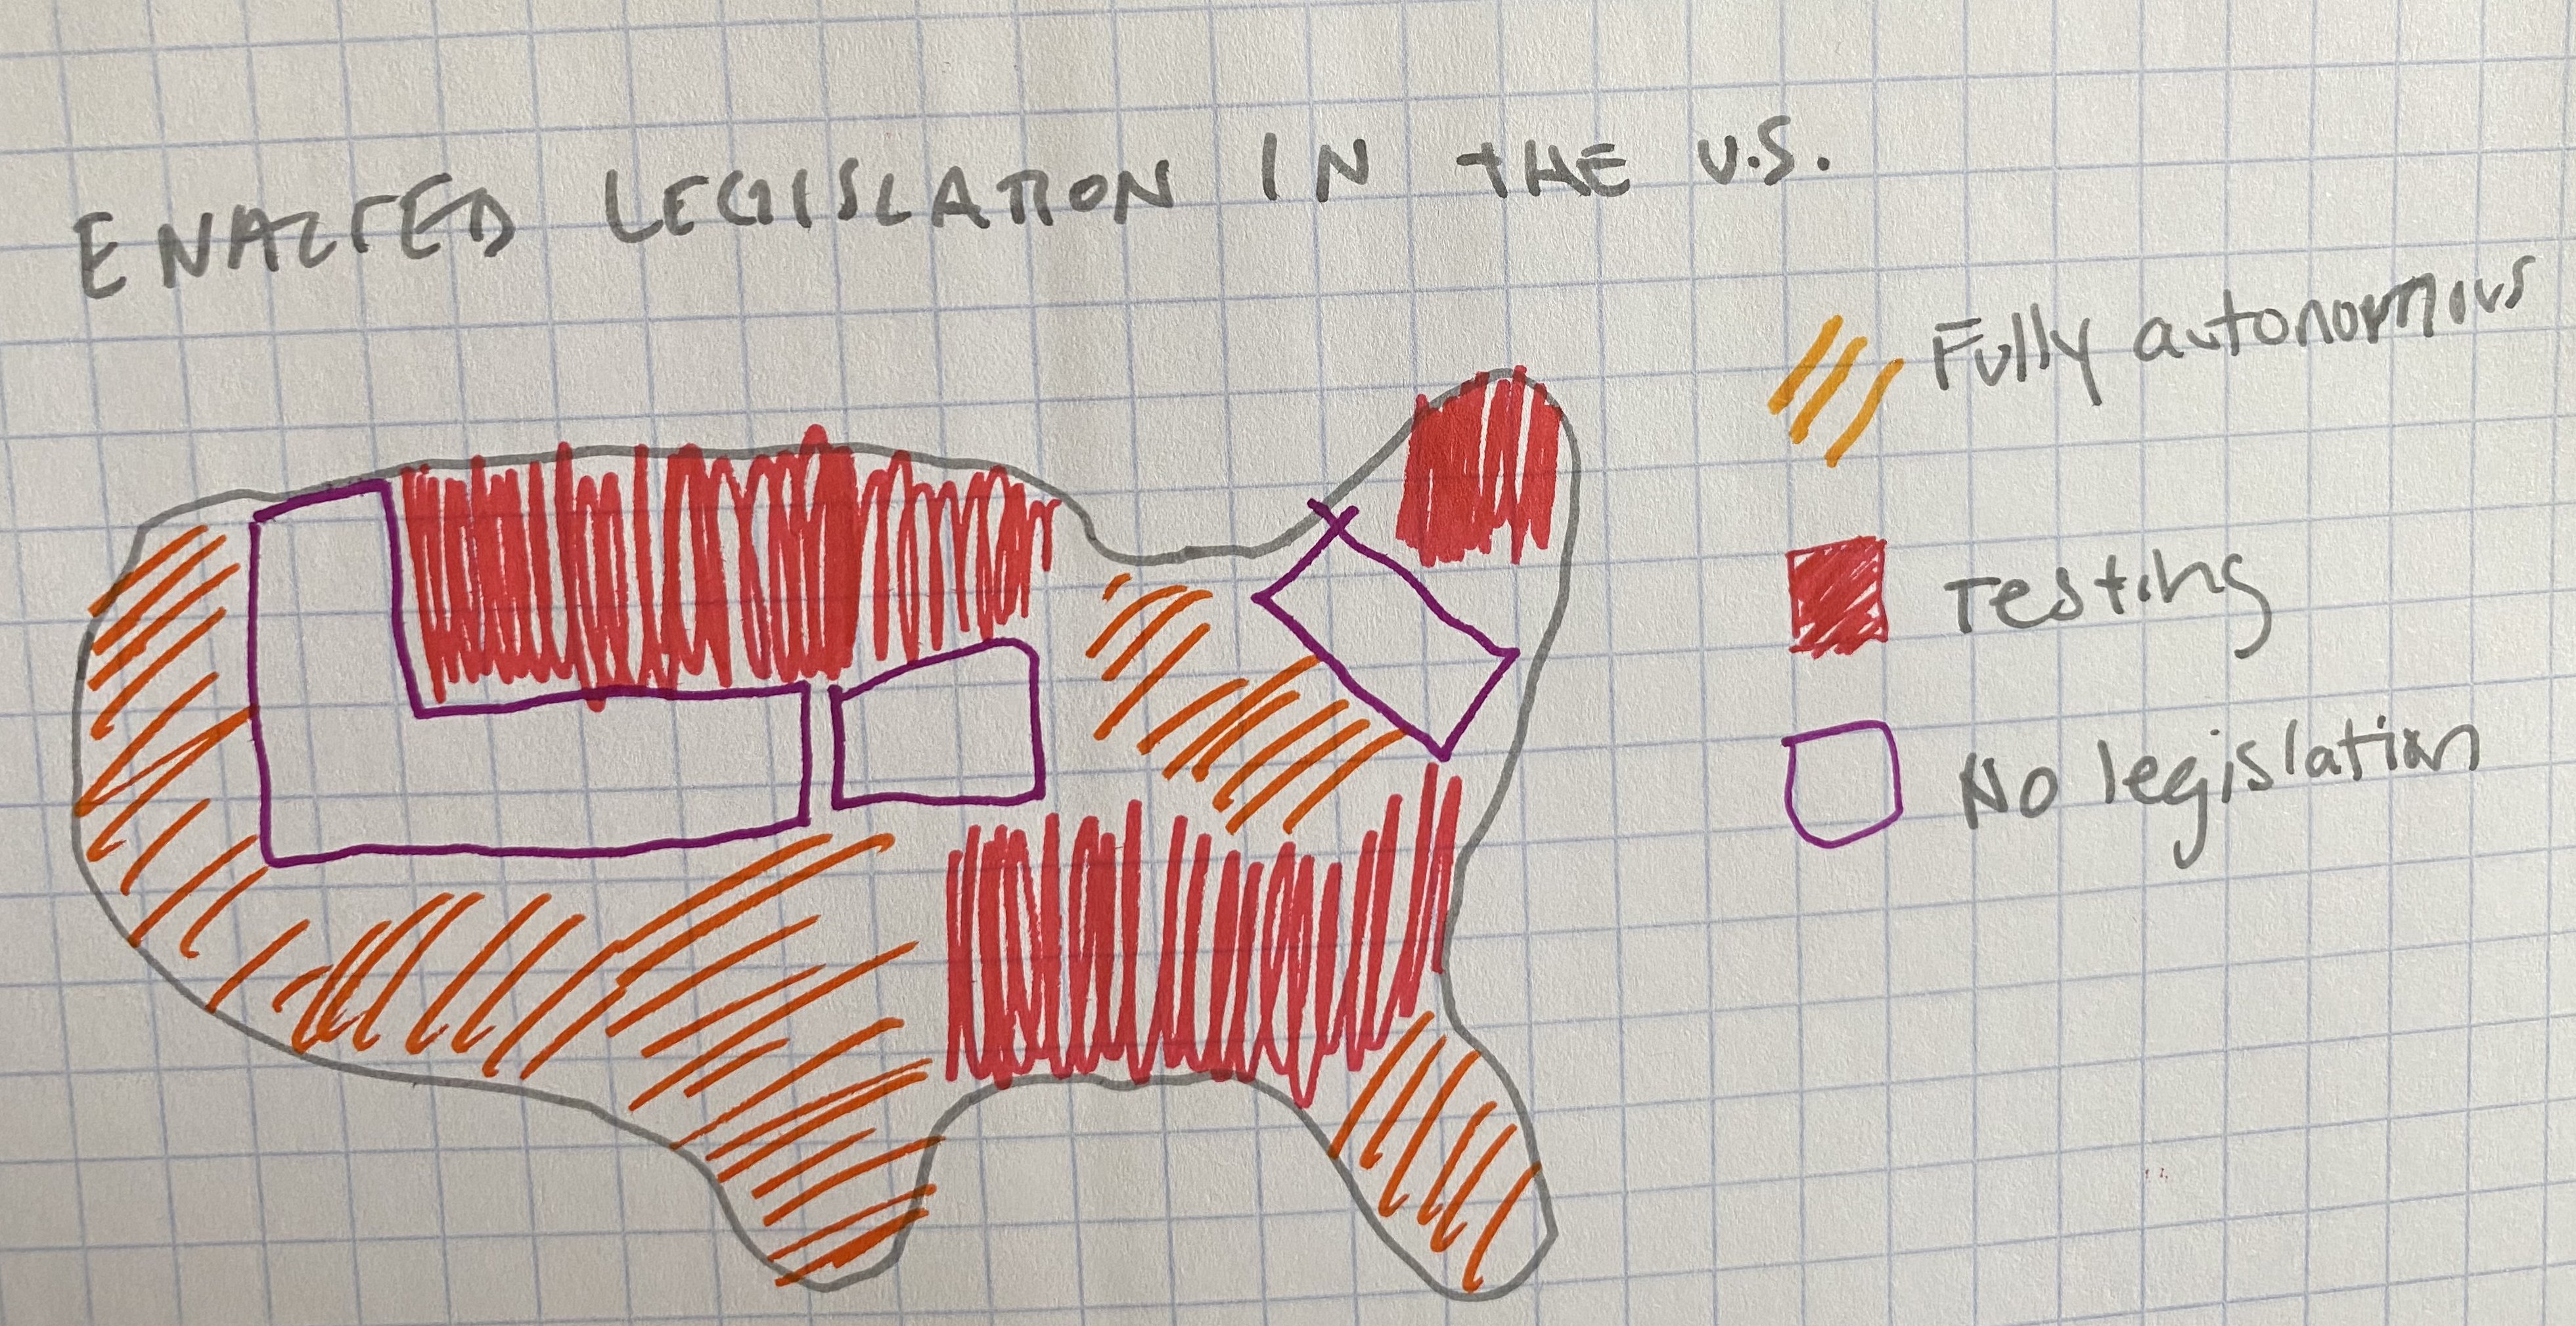 ENACTED LEGISLATION IN THE U.S.
Fully autonomous
Testing
No legislation